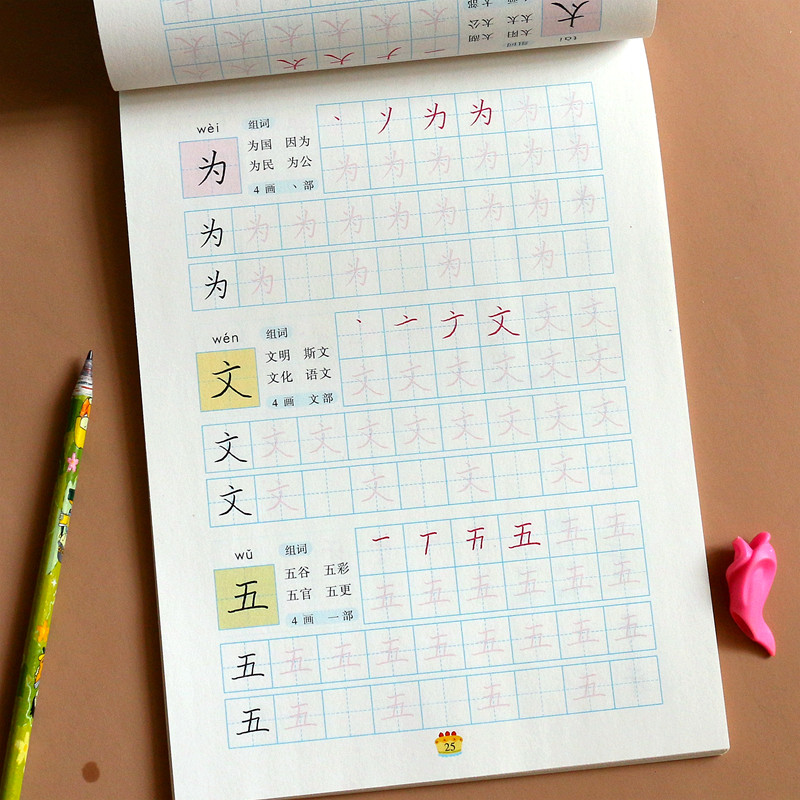 tài
太
组词
太阳 太太
wèi
为
组词
为国 因为
为民 为公
4 画 丶部
丶 丷 为 为 为 为
为 为 为 为 为 为
为 为 为 为 为 为 为 为 为
为 为 为 为 为
wén
文
组词
文明 斯文
文化 语文
4 画 文部
丶 亠 文 文 文
文 文 文 文 文 文
文 文 文 文 文 文 文 文 文
文 文 文 文 文
wǔ
五
组词
五谷 五彩
五官 五更
4 画 一部
一 丅 五 五 五
五 五 五 五 五 五
五 五 五 五 五 五 五 五 五
五 五 五 五 五
25